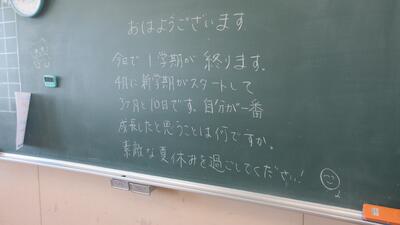 おはようございます
今日で1学期が終ります。
4月に新学期がスタートして
3ヶ月と10日です。自分が一番
成長したと思うことは何ですか。
素敵な夏休みを過ごしてください!